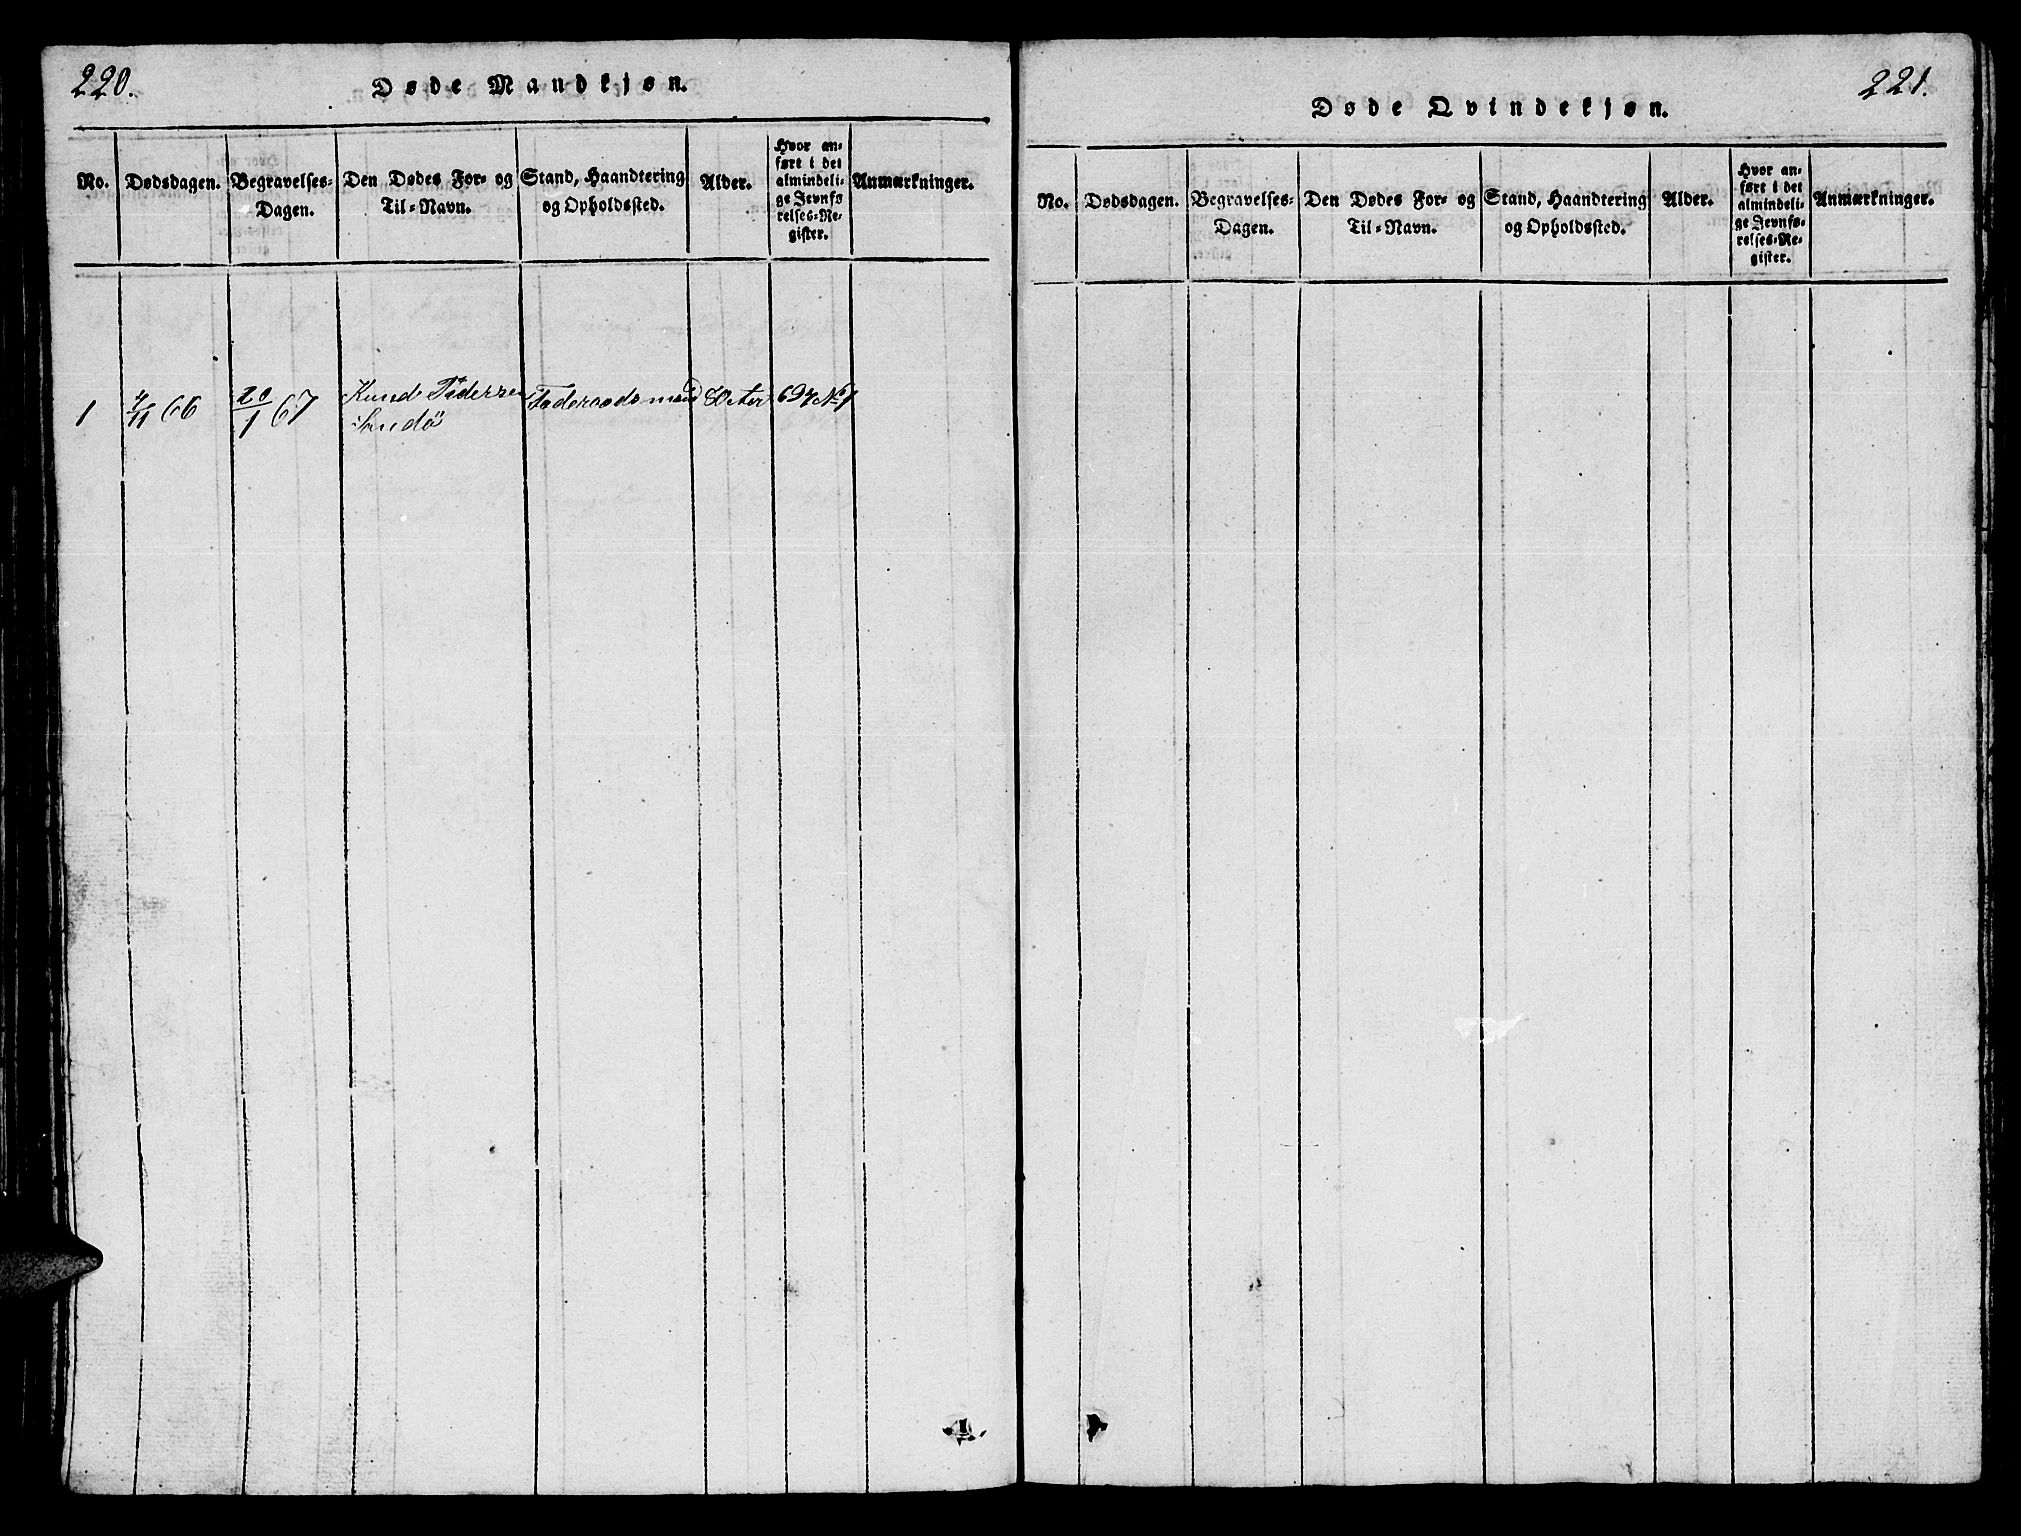 220.
Døde Mandkjøn.
No.
Dødsdagen.
Begravelses-
Dagen.
Den Dødes For- og
Til-Navn.
Stand, Haandtering
og Opholdssted.
Alder.
Hvor an-
ført i det
almindeli-
ge Jevnfø
relses-Re-
gister.
Anmærkninger.
1
66
20/1 67
Knud Pedersen
Føderaadsmand
221.
Døde Qvindekjøn.
No.
Dødsdagen.
Begravelses-
Dagen.
Den Dødes For- og
Til-Navn.
Stand, Haandtering
og Opholdssted.
Alder.
Hvor an-
ført i det
almindeli-
ge Jevnfø-
relses-Re-
gister.
Anmærkninger.